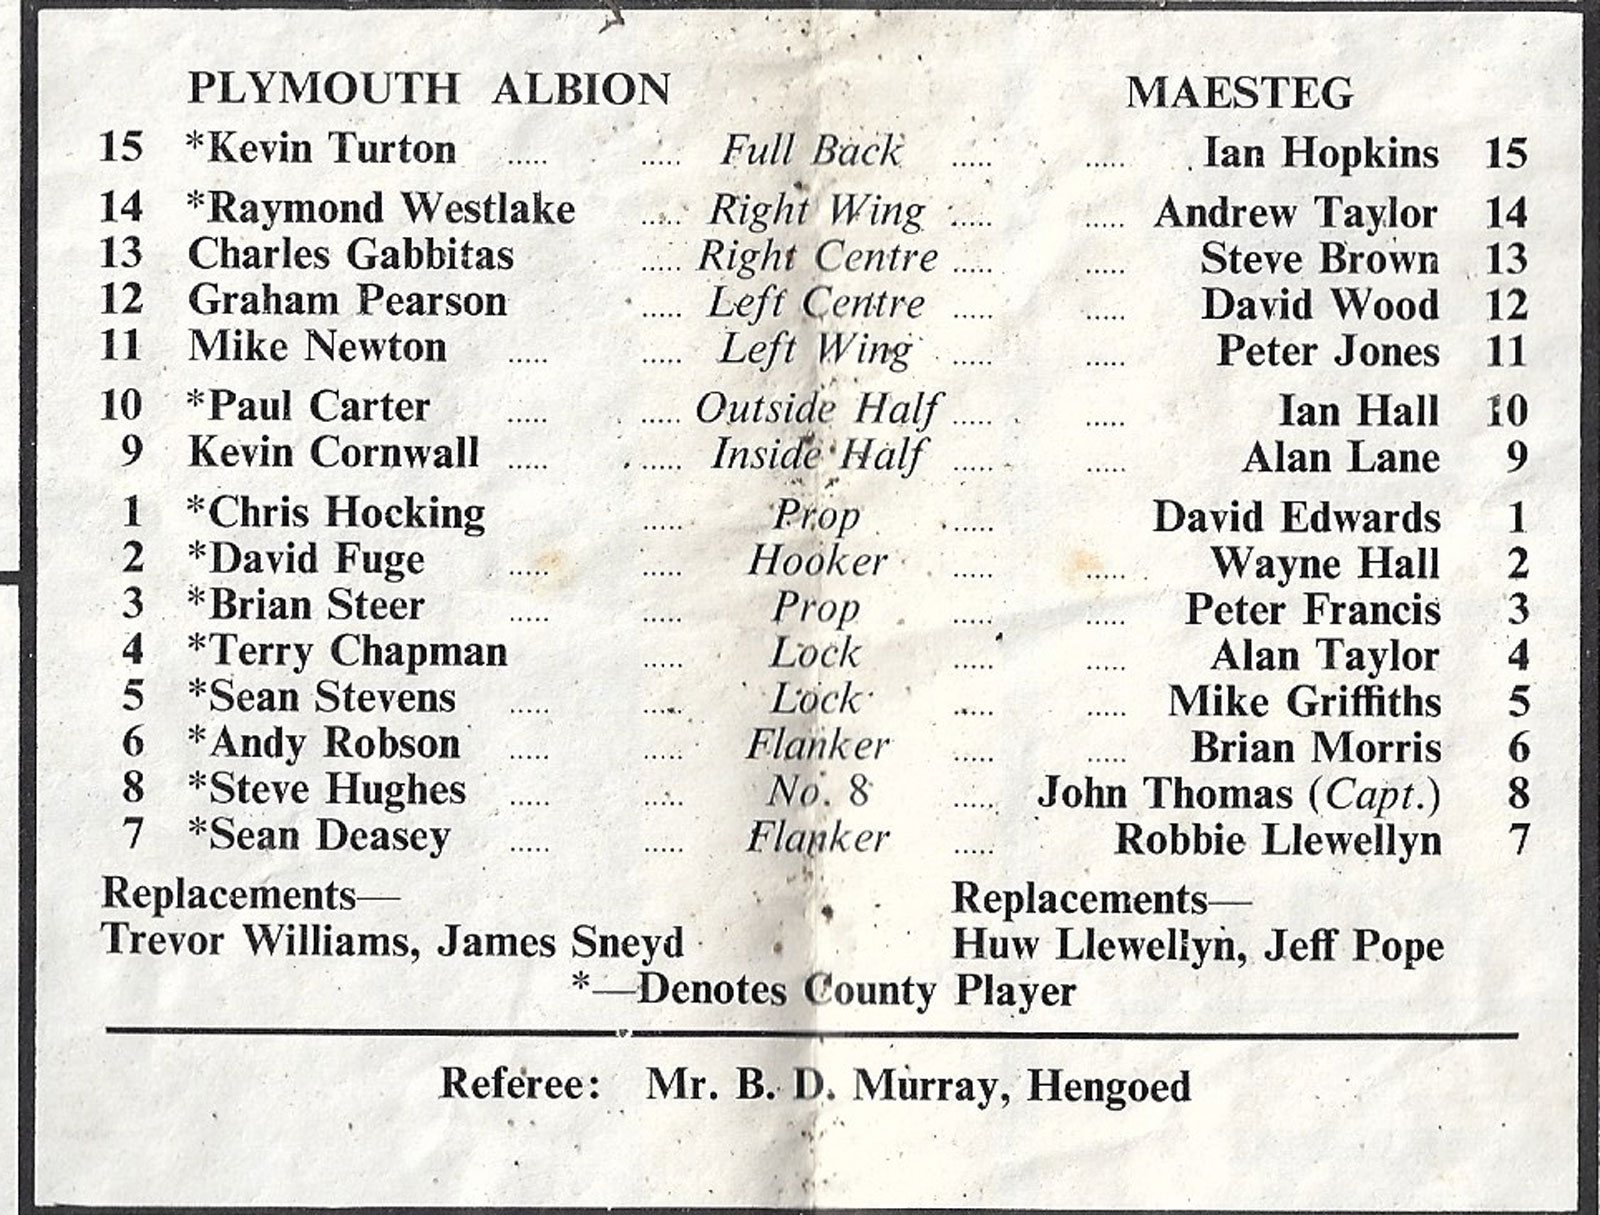 PLYMOUTH ALBION MAESTEG
15 *Kevin Turton ..... ..... Full Back ..... ..... Ian Hopkins 15
14 *Raymond Westlake ..... Right Wing ..... ..... Andrew Taylor 14
13 Charles Gabbitas ..... Right Centre ..... ..... Steve Brown 13
12 Graham Pearson ..... Left Centre ..... ..... David Wood 12
11 Mike Newton ..... ..... Left Wing ..... ..... Peter Jones 11
10 *Paul Carter ..... ..... Outside Half ..... ..... Ian Hall 10
9 Kevin Cornwall ..... ..... Inside Half ..... ..... Alan Lane 9
1 *Chris Hocking ..... Prop ..... David Edwards 1
2 *David Fuge ..... ..... Hooker ..... ..... Wayne Hall 2
3 *Brian Steer ..... ..... Prop ..... ..... Peter Francis 3
4 *Terry Chapman ..... Lock ..... ..... Alan Taylor 4
5 *Sean Stevens ..... ..... Lock ..... ..... Mike Griffiths 5
6 *Andy Robson ..... ..... Flanker ..... ..... Brian Morris 6
8 *Steve Hughes ..... ..... No. 8 ..... John Thomas (Capt.) 8
7 *Sean Deasey ..... ..... Flanker ..... Robbie Llewellyn 7
Replacements— Replacements—
Trevor Williams, James Sneyd Huw Llewellyn, Jeff Pope
*—Denotes County Player
Referee: Mr. B. D. Murray, Hengoed